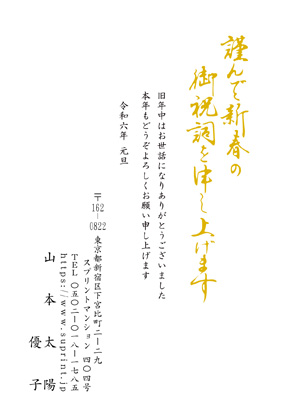 謹んで新春の
御祝詞を申し上げます
旧年中はお世話になりありがとうございました
本年もどうぞよろしくお願い申し上げます
令和六年 元旦
〒162-0822
東京都新宿区下宮比町二-二九
スプリントマンション 四〇四号
TEL 〇五〇二-〇一八-一七五
https://www.suprint.jp
山本 太陽
優子